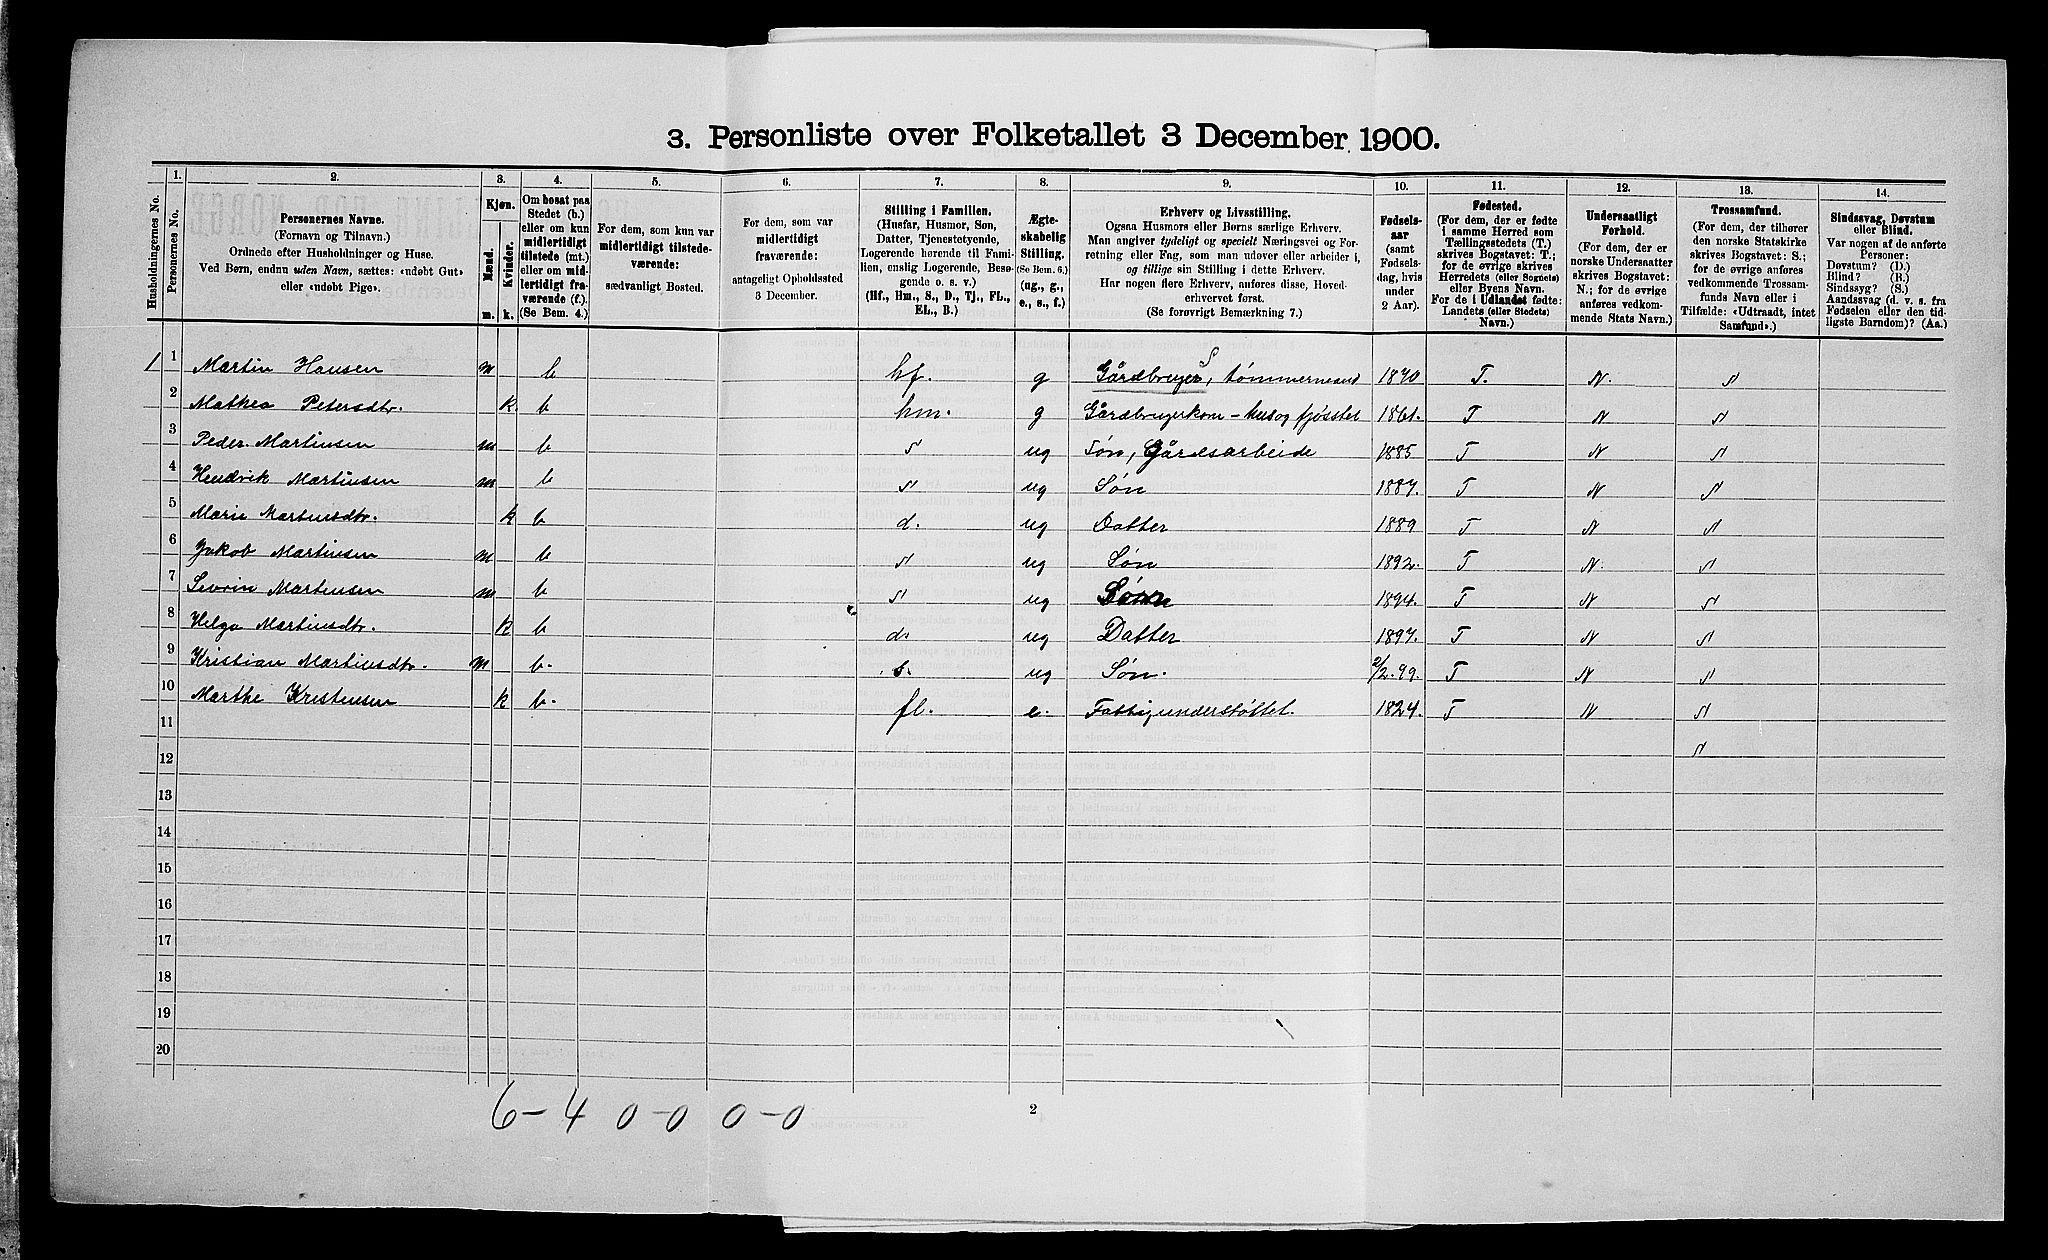 3. Personliste over Folketallet 3 December 1900.
Husholdningernes No.
1. Personernes No.
2. Personernes Navne.
(Fornavn og Tilnavn.)
Ordnede efter Husholdninger og Huse.
Ved Børn, endnu uden Navn, sættes: «udøbt Gut»
eller «udøbt Pige».
3. Kjøn.
Mænd. m.
Kvinder. k.
4. Om bosat paa
Stedet (b.)
eller om kun
midlertidigt
tilstede (mt.)
eller om mid-
lertidigt fra-
værende (f.)
(Se Bem. 4.)
5. For dem, som kun var
midlertidigt tilstede-
værende:
sædvanligt Bosted.
6. For dem, som var
midlertidigt
fraværende:
antageligt Opholdssted
3 December.
7. Stilling i Familien.
(Husfar, Husmor, Søn,
Datter, Tjenestetyende,
Logerende hørende til Fami-
lien, enslig Logerende, Besø-
gende o. s. v.)
(Hf., Hm., S., D., Tj., FL.,
EL., B.)
8. Ægte-
skabelig
Stilling.
(Se Bem. 6.)
(ug., g.,
e., s., f.)
9. Erhverv og Livsstilling.
Ogsaa Husmors eller Børns særlige Erhverv.
Man angiver tydeligt og specielt Næringsvei og For-
retning eller Fag, som man udover eller arbeider i,
og tillige sin Stilling i dette Erhverv.
Har nogen flere Erhverv, anføres disse, Hoved-
erhvervet først.
(Se forøvrigt Bemærkning 7.)
10. Fødsels-
aar
(samt
Fødsels-
dag, hvis
under
2 Aar).
11. Fødested.
(For dem, der er fødte
i samme Herred som
Tællingsstedets (T.)
skrives Bogstavet: T.;
for de øvrige skrives
Herredets (eller Sognets)
eller Byens Navn.
For de i Udlandet fødte:
Landets (eller Stedets)
Navn.)
12. Undersaatligt
Forhold.
(For dem, der er
norske Undersaatter
skrives Bogstavet:
N.; for de øvrige
anføres vedkom-
mende Stats Navn.)
13. Trossamfund.
(For dem, der tilhører
den norske Statskirke
skrives Bogstavet: S.;
for de øvrige anføres
vedkommende Trossam-
funds Navn eller i
Tilfælde: «Udtraadt, intet
Samfund».)
14. Sindssvag, Døvstum
eller Blind.
Var nogen af de anførte
Personer:
Døvstum? (D.)
Blind? (B.)
Sindssyg? (S.)
Aandssvag (d. v. s. fra
Fødselen eller den tid-
ligste Barndom)? (Aa.)
1 1 Martin Hansen m b hf. g Gårdbruger S, tømmermand 1840 T. N. S
2 Mathea Petersdtr. k b hm. g Gårdbrugerkone - hus og fjøsstel 1861. T N S
3 Peder Martinsen m b S ug Søn, Gårdsarbeide 1885 T N S
4 Hendrik Martinsen m b S ug Søn 1887. T N S
5 Marie Martinsdtr. k b d. ug Datter 1889 T N S
6 Jakob Martinsen m b S ug Søn 1892. T N. S
7 Sevrin Martinsen m b S ug Sønn 1894. T N S
8 Helga Martinsdtr. k b d. ug Datter 1897. T N S
9 Kristian Martinsdtr. m b. s. ug Søn. 2/2.99. T N S
10 Marthe Kristensen k b. fl. e. Fattigunderstøttet. 1824. T N S
11 S
12
13
14
15
16
17
18
19
20
6-4 0-0 0-0
2